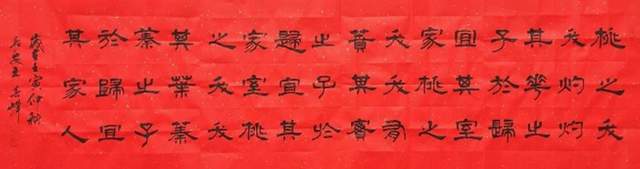 桃之夭
夭灼灼
其華之
子於歸
宜其室
家桃之
夭夭有
蕡其實
之子於
歸宜其
家室桃
之夭夭
其葉蓁
蓁之子
於歸宜
其家人
歲在壬寅仲秋